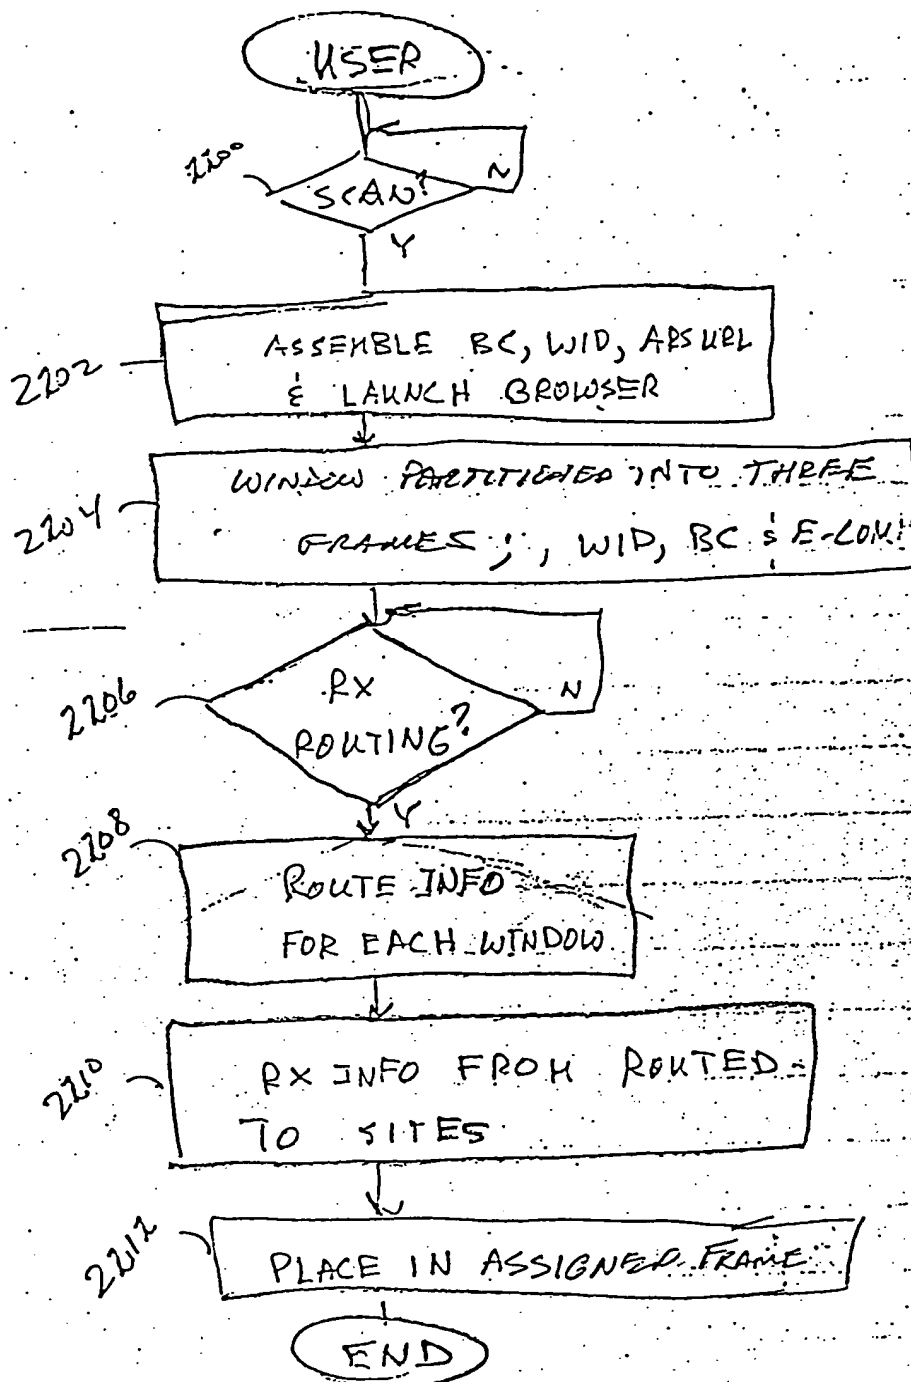 USER
2200
SCAN?
N
Y
2202
ASSEMBLE BC, WID, ARS URL
& LAUNCH BROWSER
2204
WINDOW PARTITIONED INTO THREE
FRAMES ; , WID, BC & E-COM
2206
RX
ROUTING?
N
Y
2208
ROUTE INFO
FOR EACH WINDOW
2210
RX INFO FROM ROUTED
TO SITES
2212
PLACE IN ASSIGNED FRAME
END